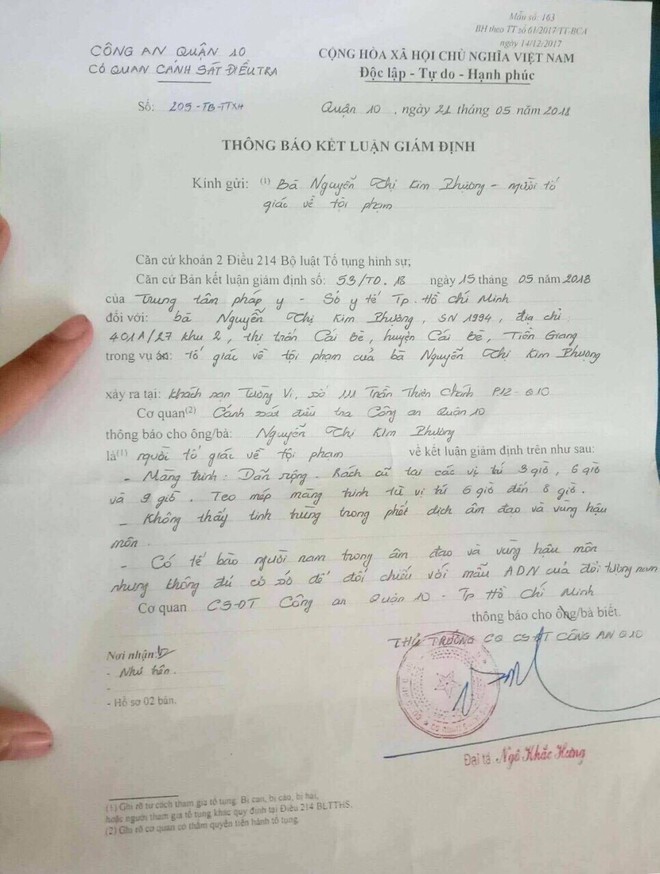 Mẫu số: 163
BH theo TT số 61/2017/TT-BCA
ngày 14/12/2017
CÔNG AN QUẬN 10
CƠ QUAN CẢNH SÁT ĐIỀU TRA
CỘNG HÒA XÃ HỘI CHỦ NGHĨA VIỆT NAM
Độc lập - Tự do - Hạnh phúc
Số: 205-TB-TTXH
Quận 10, ngày 21 tháng 05 năm 2018
THÔNG BÁO KẾT LUẬN GIÁM ĐỊNH
Kính gửi: (1) Bà Nguyễn Thị Kim Phượng - người tố
giác về tội phạm
Căn cứ khoản 2 Điều 214 Bộ luật Tố tụng hình sự;
Căn cứ Bản kết luận giám định số: 53/TD.18 ngày 15 tháng 05 năm 2018
của Trung tâm pháp y - Sở y tế Tp. Hồ Chí Minh
đối với: bà Nguyễn Thị Kim Phượng, SN 1994, địa chỉ
401A/27 khu 2, thị trấn Cái Bè, huyện Cái Bè, Tiền Giang
trong vụ án: tố giác về tội phạm của bà Nguyễn Thị Kim Phượng
xảy ra tại: khách sạn Tường Vi, số 111 Trần Thiện Chánh P12-Q10
Cơ quan(2) Cảnh sát điều tra Công an Quận 10
thông báo cho ông/bà: Nguyễn Thị Kim Phượng
là(1) người tố giác về tội phạm về kết luận giám định trên như sau:
- Màng trinh: Dãn rộng. Rách cũ tại các vị trí 3 giờ, 6 giờ
và 9 giờ. Teo mép màng trinh từ vị trí 6 giờ đến 8 giờ.
- Không thấy tinh trùng trong phết dịch âm đạo và vùng hậu
môn.
- Có tế bào người nam trong âm đạo và vùng hậu môn
nhưng không đủ cơ sở để đối chiếu với mẫu ADN của đối tượng nam
Cơ quan CSĐT Công an Quận 10 - Tp Hồ Chí Minh
thông báo cho ông/bà biết.
Nơi nhận:
- Như trên.
-
- Hồ sơ 02 bản.
THỦ TRƯỞNG CQ CSĐT CÔNG AN Q10
Đại tá Ngô Khắc Hưng
(1) Ghi rõ tư cách tham gia tố tụng: Bị can, bị cáo, bị hại,
hoặc người tham gia tố tụng khác quy định tại Điều 214 BLTTHS.
(2) Ghi rõ cơ quan có thẩm quyền tiến hành tố tụng.